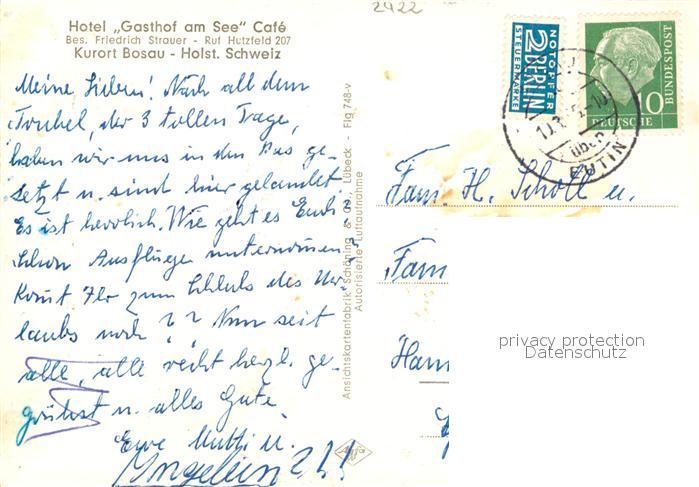 2422
Hotel „Gasthof am See" Café
Bes. Friedrich Strauer - Ruf Hutzfeld 207
Kurort Bosau - Holst. Schweiz
Meine Lieben! Nach all dem
Trubel, der 3 tollen Tage,
haben wir uns in den Bus ge-
setzt u. sind hier gelandet
Es ist herrlich. Wie geht es Euch
Schon Ausflüge unternommen?
Komt Ihr zum Schluß des Ur-
laubs noch? ? Nun seit
alle, alle recht herzl. ge-
grüßst u. alles Gute.
Eure Mutti u.
Ansichtskartenfabrik Schöning & Co., Lübeck - Flg 748-v
Autorisierte Luftaufnahme
NOTOPFER
2 BERLIN
STEUERMARKE
DEUTSCHE
BUNDESPOST
10
über
EUTIN
Fam. H. Scholl u.
Fam
Ham
privacy protection
Datenschutz